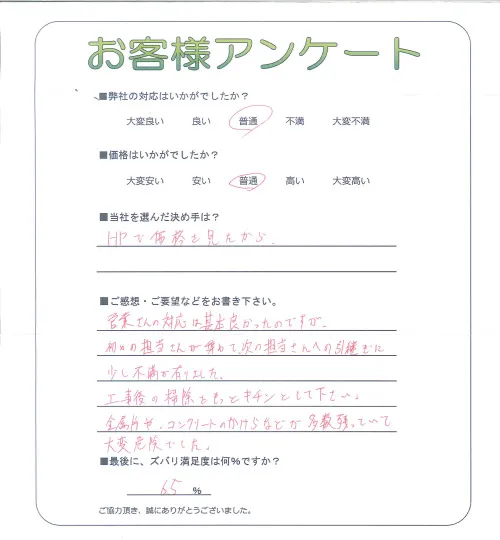 お客様アンケート
■弊社の対応はいかがでしたか？
大変良い 良い 普通 不満 大変不満
■価格はいかがでしたか？
大変安い 安い 普通 高い 大変高い
■当社を選んだ決め手は？
HPで価格を見たから.
■ご感想・ご要望などをお書き下さい。
営業さんの対応は基本良かったのですが、
初めの担当さんが辞めて、次の担当さんへの引継ぎに
少し不満が有りました。
工事後の掃除をもっとキチンとして下さい。
金属片や、コンクリートのかけらなどが多数残っていて
大変危険でした。
■最後に、ズバリ満足度は何%ですか？
65 %
ご協力頂き、誠にありがとうございました。